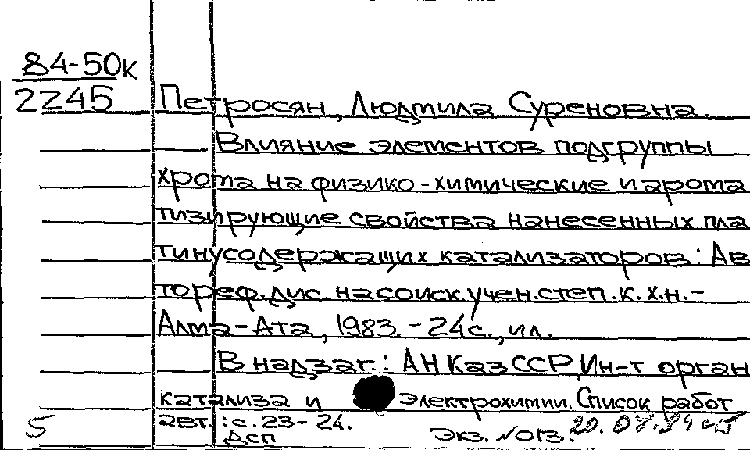 84-50к
2245
Петросян, Людмила Суреновна.
Влияние элементов подгруппы
хрома на физико-химические и арома
тизирующие свойства нанесенных пла
тинусодержащих катализаторов: Ав
тореф. дис. на соиск. учен. степ. к.х.н.-
Алма-Ата, 1983.-24с., ил.
В надзаг.: АН КазССР, Ин-т орган
катализа и электрохимии. Список работ
авт.: с. 23-24.
ДСП Экз. №013.
5